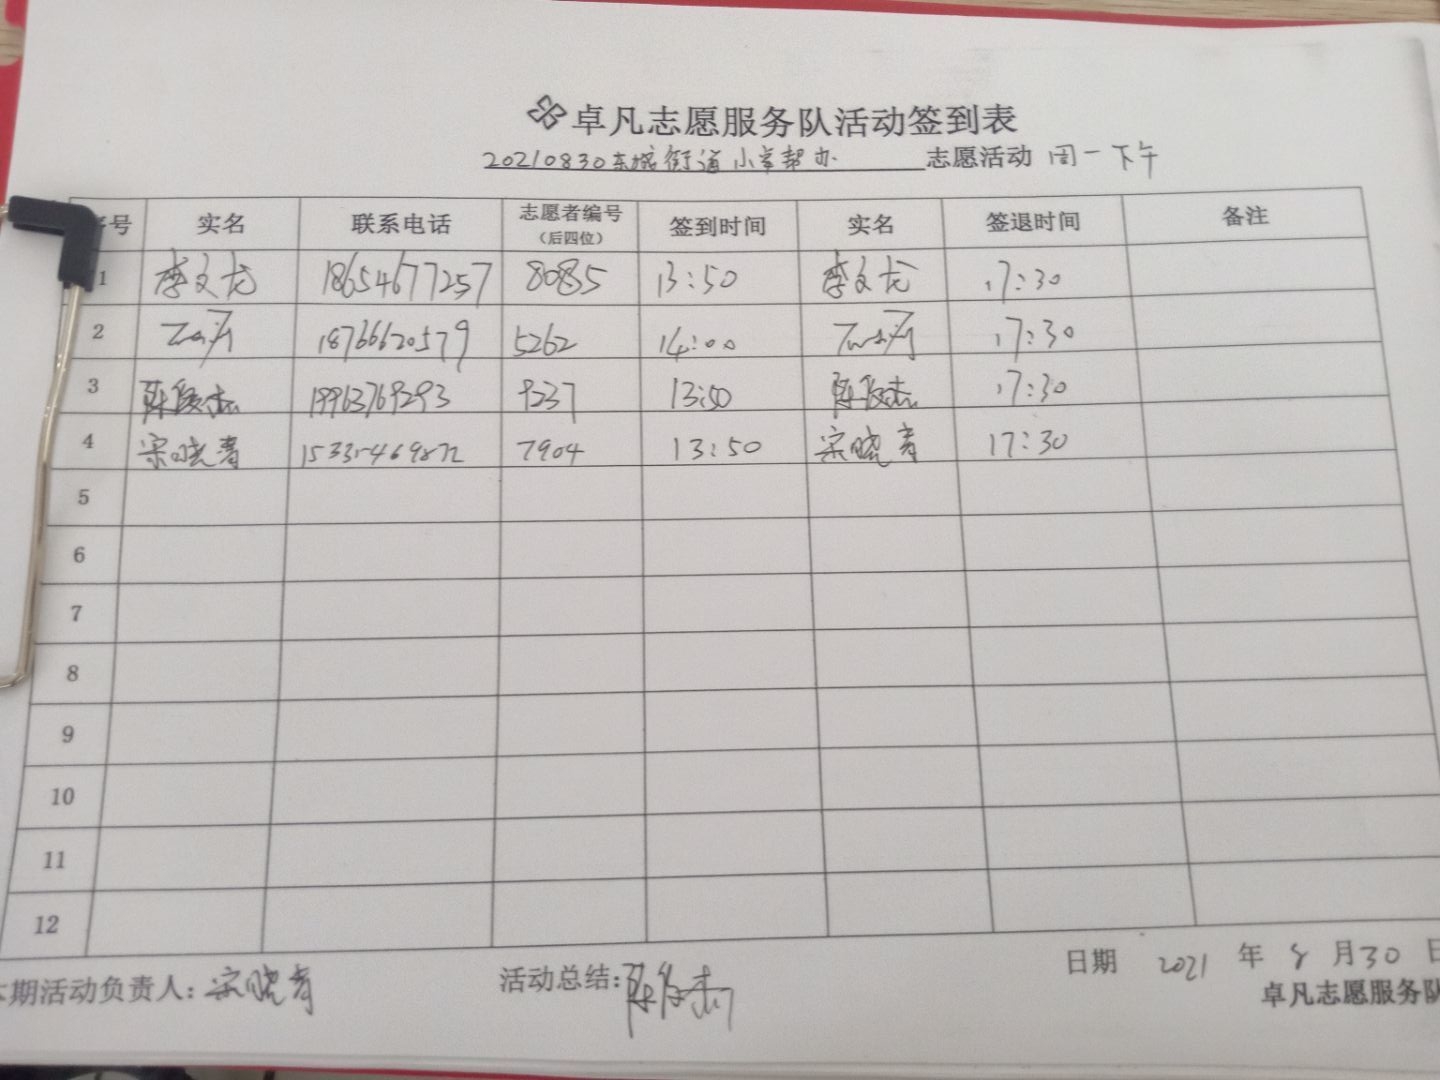 卓凡志愿服务队活动签到表
20210830东城街道小学帮办 志愿活动 周一下午
序号 实名 联系电话 志愿者编号(后四位) 签到时间 实名 签退时间 备注
1 李文龙 18654677257 8085 13:50 李文龙 17:30
2 18766620579 5262 14:00 17:30
3 陈俊杰 19963769293 9237 13:50 陈俊杰 17:30
4 宋晓青 15335469872 7904 13:50 宋晓青 17:30
5
6
7
8
9
10
11
12
本期活动负责人:宋晓青 活动总结:陈俊杰 日期 2021 年 8 月 30 日
卓凡志愿服务队